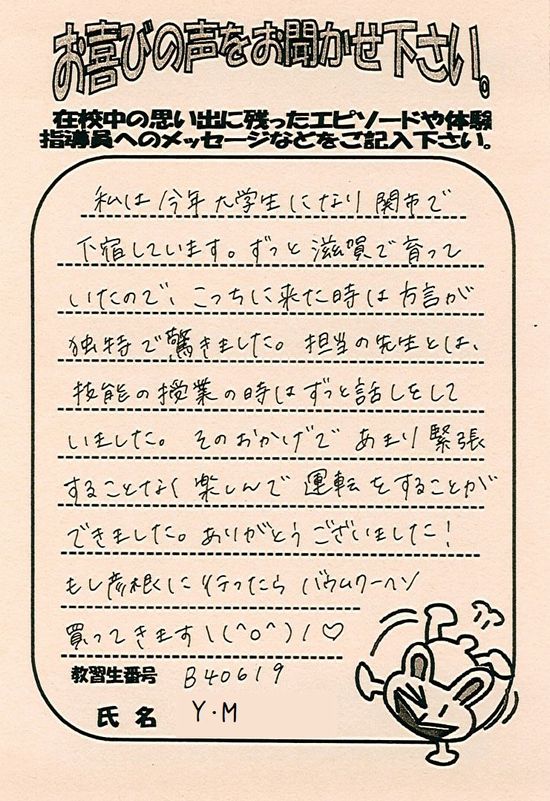 お喜びの声をお聞かせ下さい。
在校中の思い出に残ったエピソードや体験
指導員へのメッセージなどをご記入下さい。
私は今年大学生になり関市で
下宿しています。ずっと滋賀で育って
いたので、こっちに来た時は方言が
独特で驚きました。担当の先生とは、
技能の授業の時はずっと話しをして
いました。そのおかげであまり緊張
することなく楽しんで運転をすることが
できました。ありがとうございました!
もし彦根に行ったらバウムクーヘン
買ってきます\(^o^)/♡
教習生番号 B40619
氏名 Y.M